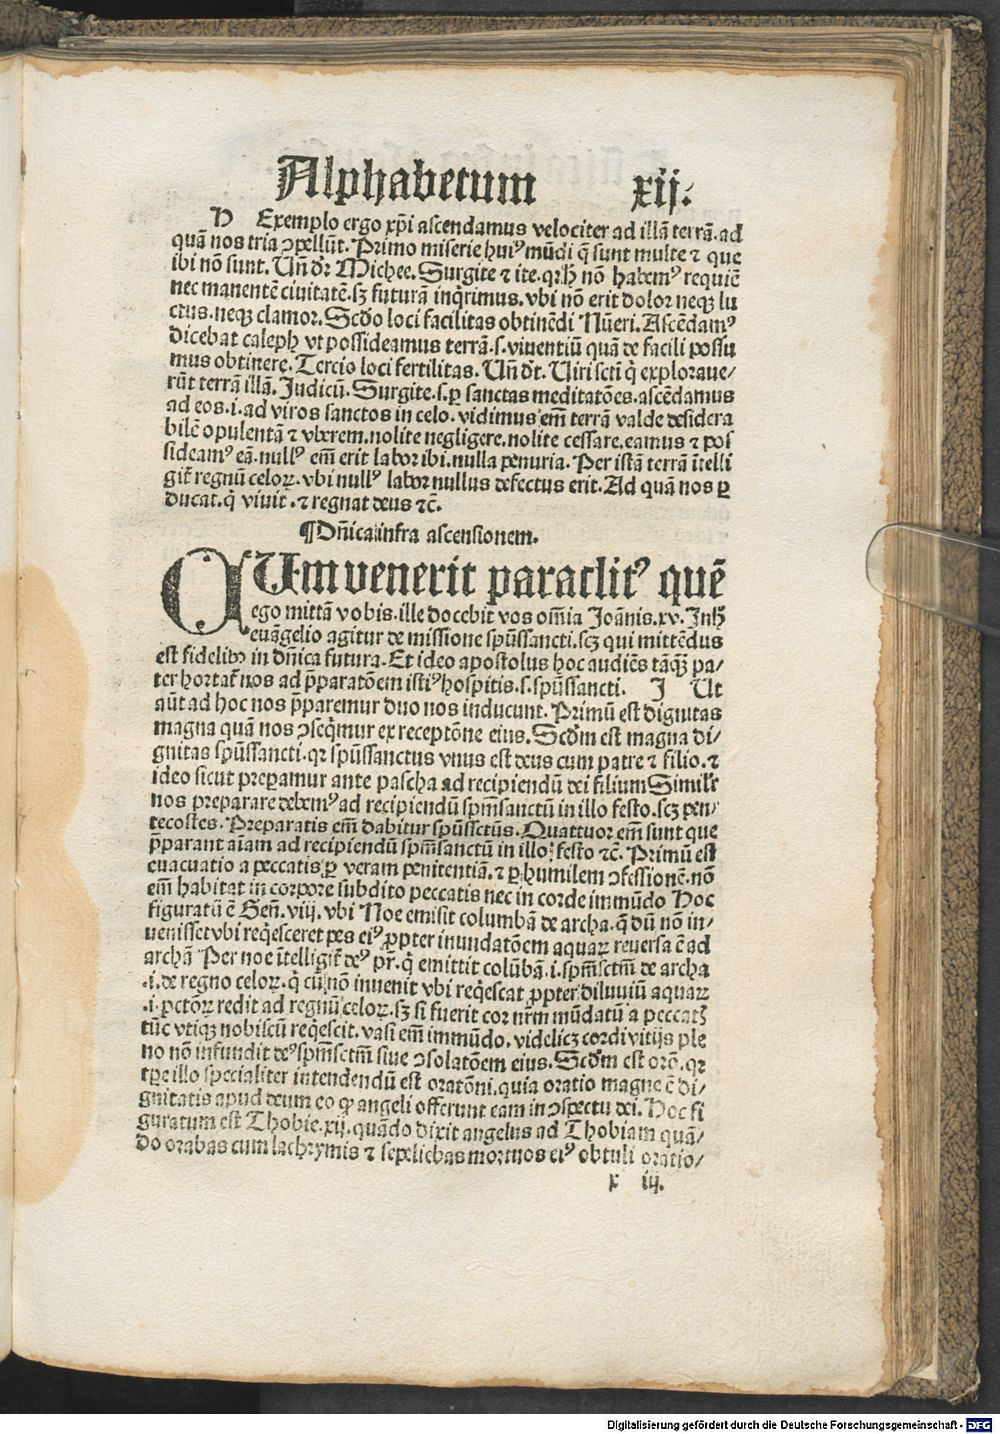 Alphabetum xij.
H Exemplo ergo xp̄i ascendamus velociter ad illā terrā. ad
quā nos tria ↄpellūt. Primo miserie huiꝰ mūdi q̄ sunt multe ⁊ que
ibi nō sunt. Uñ dr̄ Michee. Surgite ⁊ ite. qꝛ h̄ nō habemꝰ requiē
nec manentē ciuitatē. sꝫ futurā inq̄rimus. vbi nō erit dolor neqꝫ lu
ctus. neqꝫ clamor. Scďo loci facilitas obtinēdi Nūeri. Ascēdamꝰ
dicebat caleph vt possideamus terrā. s. viuentiū quā de facili possu
mus obtinere. Tercio loci fertilitas. Uñ dr̄. Uiri scti q̇ explorauer⸗
rūt terrā illā. Judicū. Surgite. s. ꝑ sanctas meditatōes. ascēdamus
ad eos. i. ad viros sanctos in celo. vidimus em̄ terrā valde desidera
bilē opulentā ⁊ vberem. nolite negligere. nolite cessare. eamus ⁊ pos
sideamꝰ eā. nullꝰ em̄ erit labor ibi. nulla penuria. Per istā terrā ītelli
git̄ regnū celoꝝ. vbi nullꝰ labor nullus defectus erit. Ad quā nos ꝑ
ducat. q̇ viuit. ⁊ regnat deus ⁊c̄.
¶ Dn̄ica infra ascensionem.
QUm venerit paraclitꝰ quē
ego mittā vobis. ille docebit vos om̄ia Joānis. xv. In h̄
euāgelio agitur de missione spūssancti. scꝫ qui mittēdus
est fidelibꝫ in dn̄ica futura. Et ideo apostolus hoc audiēs tāqꝫ pa⸗
ter hortat̄ nos ad p̄paratōem istiꝰ hospitis. s. spūssancti. I Ut
aūt ad hoc nos p̄paremur duo nos inducunt. Primū est dignitas
magna quā nos ↄseq̇mur ex receptōne eius. Scďm est magna di⸗
gnitas spūssancti. qꝛ spūssanctus vnus est deus cum patre ⁊ filio. ⁊
ideo sicut prepamur ante pascha ad recipiendū dei filium Simil̄r
nos preparare debemꝰ ad recipiendū spm̄sanctū in illo festo. scꝫ pen⸗
tecostes. Preparatis em̄ dabitur spūssctūs. Quattuor em̄ sunt que
p̄parant aīam ad recipiendū spm̄sanctū in illo festo ⁊c̄. Primū est
euacuatio a peccatis ꝑ veram penitentiā. ⁊ ꝑ humilem ↄfessionē. nō
em̄ habitat in corpore subdito peccatis nec in corde immūdo Hoc
figuratū ē Geñ. viij. vbi Noe emisit columbā de archa. q̄ dū nō in⸗
uenisset vbi req̇esceret pes eiꝰ ꝓpter inundatōem aquaꝝ reuersa ē ad
archā Per noe ītelligit̄ deꝰ pr̄. q̇ emittit colūbā. i. spm̄sctm̄ de archa
.i. de regno celoꝝ. q̇ cū nō inuenit vbi req̇escat ꝓpter diluuiū aquaꝝ
.i. pctōꝝ redit ad regnū celoꝝ. sꝫ si fuerit cor nr̄m mūdatū a peccatꝭ
tūc vtiqꝫ nobiscū req̇escit. vasi em̄ immūdo. videlicꝫ cordi vitijs ple
no nō infundit deꝰ spm̄sctm̄ siue ↄsolatōem eius. Scďm est orō. qꝛ
tꝑe illo specialiter intendendū est oratōni. quia oratio magne ē di⸗
gnitatis apud deum eo ꝙ angeli offerunt eam in ↄspectu dei. Hoc fi
guratum est Thobie. xij. quādo dixit angelus ad Thobiam quā⸗
do orabas cum lachrymis ⁊ sepeliebas mortuos eiꝰ obtuli oratio⸗
x iij.
Digitalisierung gefördert durch die Deutsche Forschungsgemeinschaft - DFG